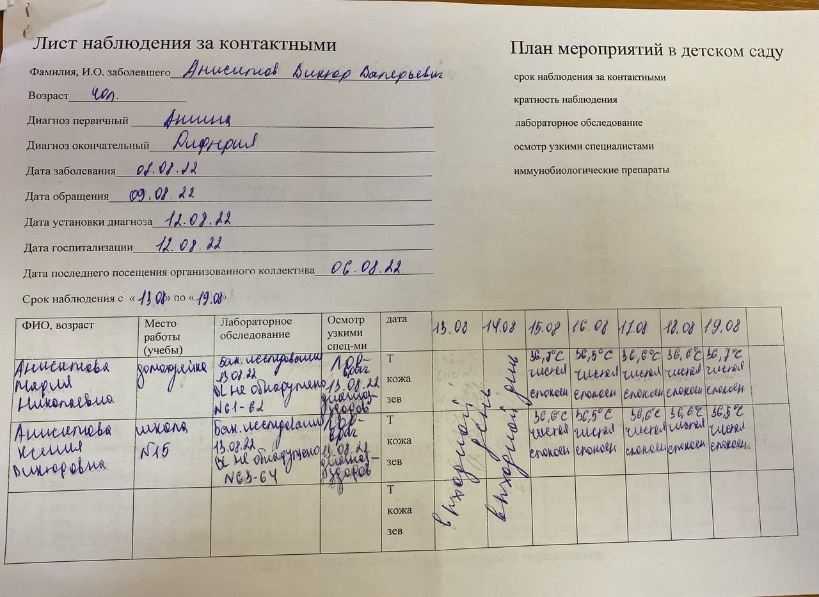 Лист наблюдения за контактными
Фамилия, И.О. заболевшего Анисимов Виктор Валерьевич
Возраст 40л.
Диагноз первичный Ангина
Диагноз окончательный Дифтерия
Дата заболевания 07.08.22
Дата обращения 09.08.22
Дата установки диагноза 12.08.22
Дата госпитализации 12.08.22
Дата последнего посещения организованного коллектива 06.08.22
Срок наблюдения с «13.08» по «19.08»
План мероприятий в детском саду
срок наблюдения за контактными
кратность наблюдения
лабораторное обследование
осмотр узкими специалистами
иммунобиологические препараты
ФИО, возраст
Место
работы
(учебы)
Лабораторное
обследование
Осмотр
узкими
спец-ми
дата
13.08
14.08
15.08
16.08
17.08
18.08
19.08
Анисимова
Мария
Николаевна
домохозяйка
Бак. исследование
13.08.22
BL не обнаружено
№61-62
Лор-
врач
13.08.22
диагноз-
здоров
Т
кожа
зев
выходной день
выходной день
36,7°С
чистая
спокоен
36,5°С
чистая
спокоен
36,6°С
чистая
спокоен
36,6°С
чистая
спокоен
36,7°С
чистая
спокоен
Анисимова
Ксения
Викторовна
школа
№15
Бак. исследование
13.08.22
BL не обнаружено
№63-64
Лор-
врач
13.08.22
диагноз-
здоров
Т
кожа
зев
36,6°С
чистая
спокоен
36,5°С
чистая
спокоен
36,6°С
чистая
спокоен
36,6°С
чистая
спокоен
36,5°С
чистая
спокоен
Т
кожа
зев